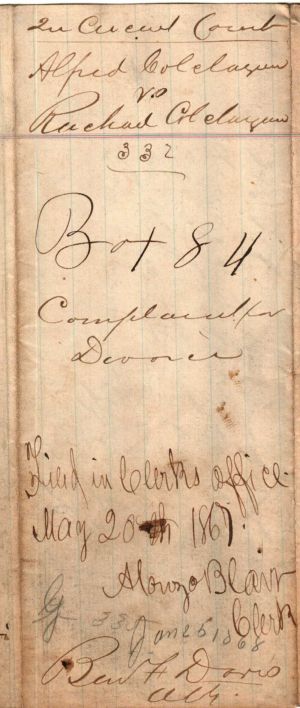 In Circuit Court
Alfred Colclazier
vs
Rachael Colclazier
332
Box 84
Complaint for
Divorce
Filed in Clerks office
May 20th 1867.
Alonzo Blair
Clerk
Jan 25 1868
Ben F Davis
Atty.